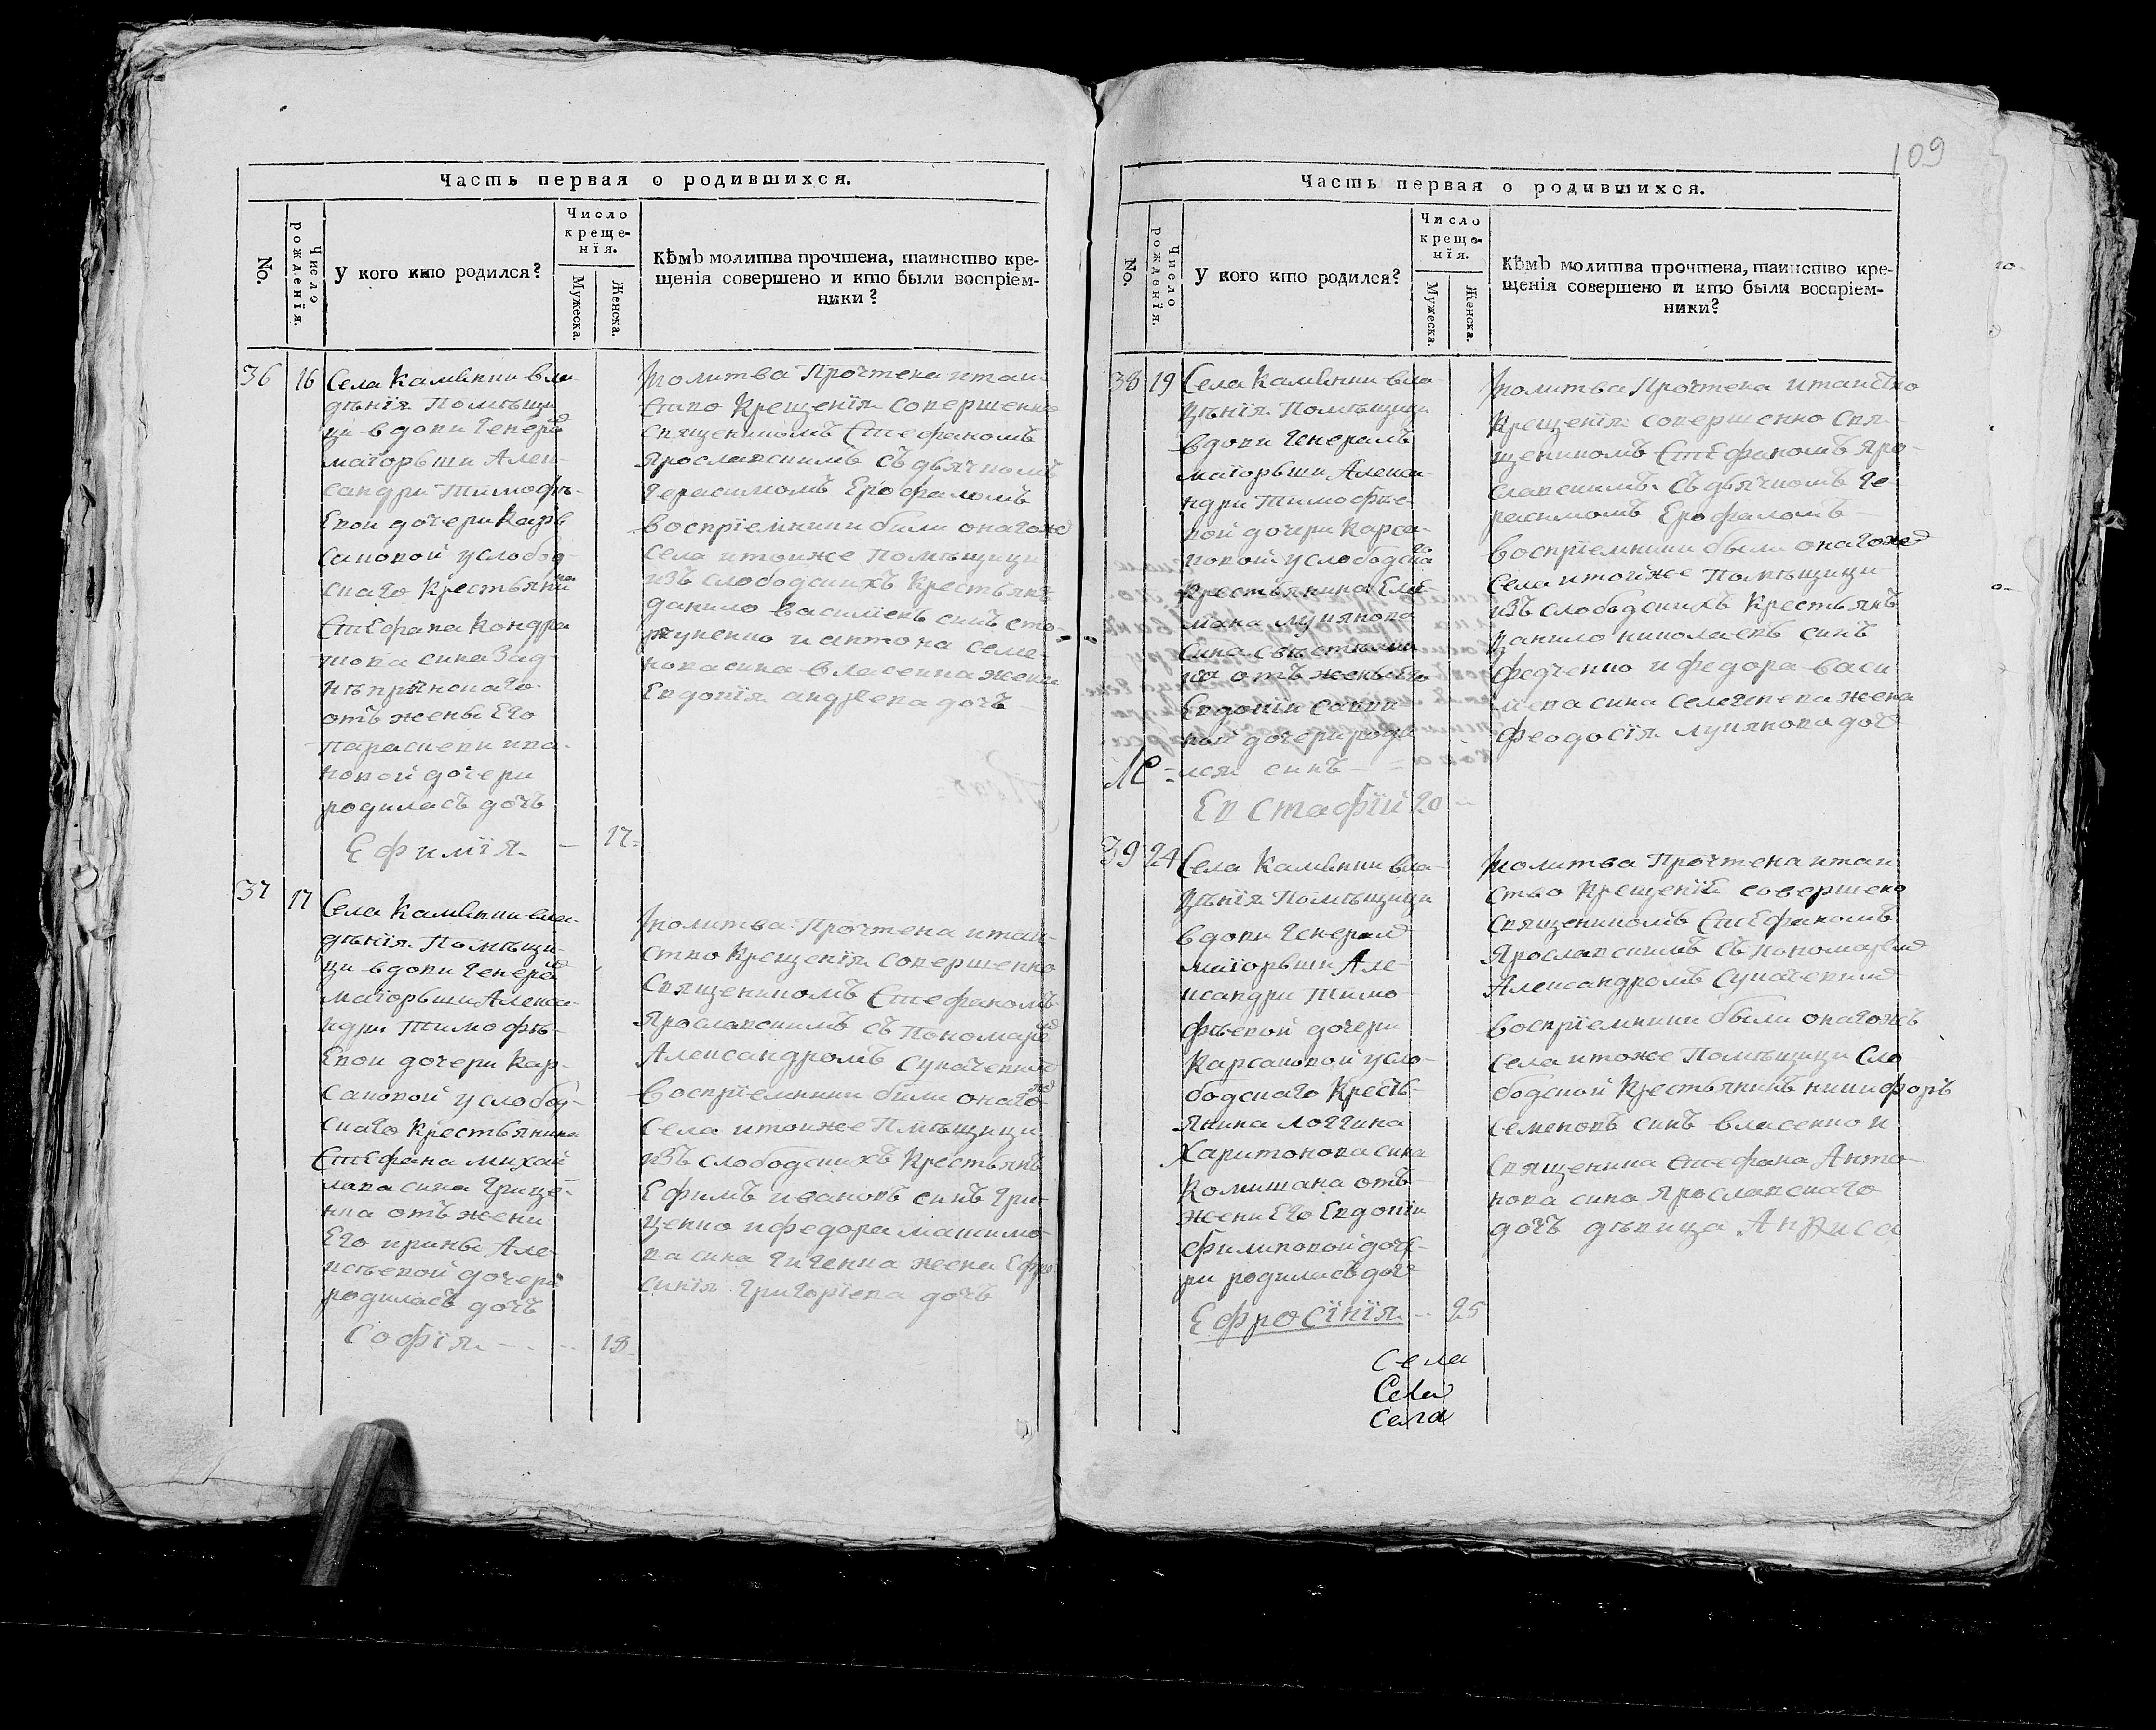 109
Часть первая о родившихся.
No.
Число рожденїя.
У кого кто родился?
Число
креще-
нїя.
Мужеска.
Женска.
Кѣмъ молитва прочтена, таинство кре-
щенїя совершено и кто были воспрїем-
ники?
36 16 Села Каменки вла-
дѣнїя Помѣщи
ци вдови Генерал
маїорьши Алек-
сандри Тимофѣ-
евои дочери Карв
саковой услобод-
скаго Крестьянина
Стефана Кондра
това сина Зад-
нѣпрянскаго
отъ жены Его
параскеви ива-
новой дочери
родиласъ дочь
Ефимїя 17
Молитва Прочтена итаи-
ство Крещенїя совершенно
священикомъ Стефаномъ
Ярославскимъ съ дьячкомъ
Герасимомъ Ерофаломъ
воспрїемники были онагожъ
села итоиже помѣщици
изъ слободскихъ Крестьянъ
данило василїевъ синъ сто-
рученко и антона Семе-
нова сина власенка жена
Евдокїя андрѣева дочъ
37 17 Села Каменки вла-
дѣнїя Помѣщи-
ци вдови Генерал
маїорьши Алекса-
ндри Тимофѣ-
Евои дочери Кар-
саковой услобод-
скаго Крестьянина
Стефана михай
лова сина Грице-
нка отъ жени
Его ирины Але-
ксѣевой дочери
родиласъ дочъ
Софїя 18
Молитва Прочтена итаи-
ство Крещенїя совершенно
Священикомъ Стефаномъ
Ярославскимъ съ Пономарем
Александромъ Сукачевим
воспрїемники были онагожъ
Села итоиже Пмѣщици
изъ слободскихъ Крестьянъ
Ефимъ ивановъ синъ Гри-
ценко ифедора максимо-
ва сина Гиченка жена Ефро
синїя Григорїева дочъ
Часть первая о родившихся.
No.
Число рожденїя.
У кого кто родился?
Число
креще-
нїя.
Мужеска.
Женска.
Кѣмъ молитва прочтена, таинство кре-
щенїя совершено и кто были воспрїем-
ники?
38 19 Села Каменки вла-
дѣнїя Помѣщици
вдови Генералъ
маїорьши Алекса-
ндри Тимофѣе-
вой дочери Карса-
ковой услободска
Крестьянина Еме
мана лукянова
Сина
отъ жены Его
Евдокїи савви
ной дочери роди
лся синъ
Евстафїй 20
Молитва Прочтена итаиство
Крещенїя совершенно Свя-
щеникомъ Стефаномъ Яро-
славскимъ съ дьячкомъ Ге-
расимомъ Ерофаломъ
воспрїемники были онагожъ
села итойже помѣщици
изъ слободскихъ Крестьянъ
данило николаевъ синъ
федченко и федора васи
лїева сина селегенева жена
феодосїя лукянова доч
39 24 Села Каменки вла-
дѣнїя Помѣщици
вдови Генерал
маїорьши Але-
ксандри Тимо-
фѣевой дочери
Карсаковой усло-
бодскаго Кресть-
янина логгина
Харитонова сина
Комишана отъ
жени Его Евдокїи
филиповой доче-
ри родиласъ доч
Ефросїнїя 25
Молитва Прочтена итаи
ство Крещенїе совершено
священикомъ Стефаномъ
Ярославскимъ съ пономарем
Александромъ Сукачевим
воспрїемники были онагожъ
Села итоже Помѣщици Сло
бодской Крестьянинъ никифоръ
семеновъ синъ власенко и
священика Стефана Анто-
нова сина Ярославскаго
дочъ дѣвица Анриса
Села
Села
Села